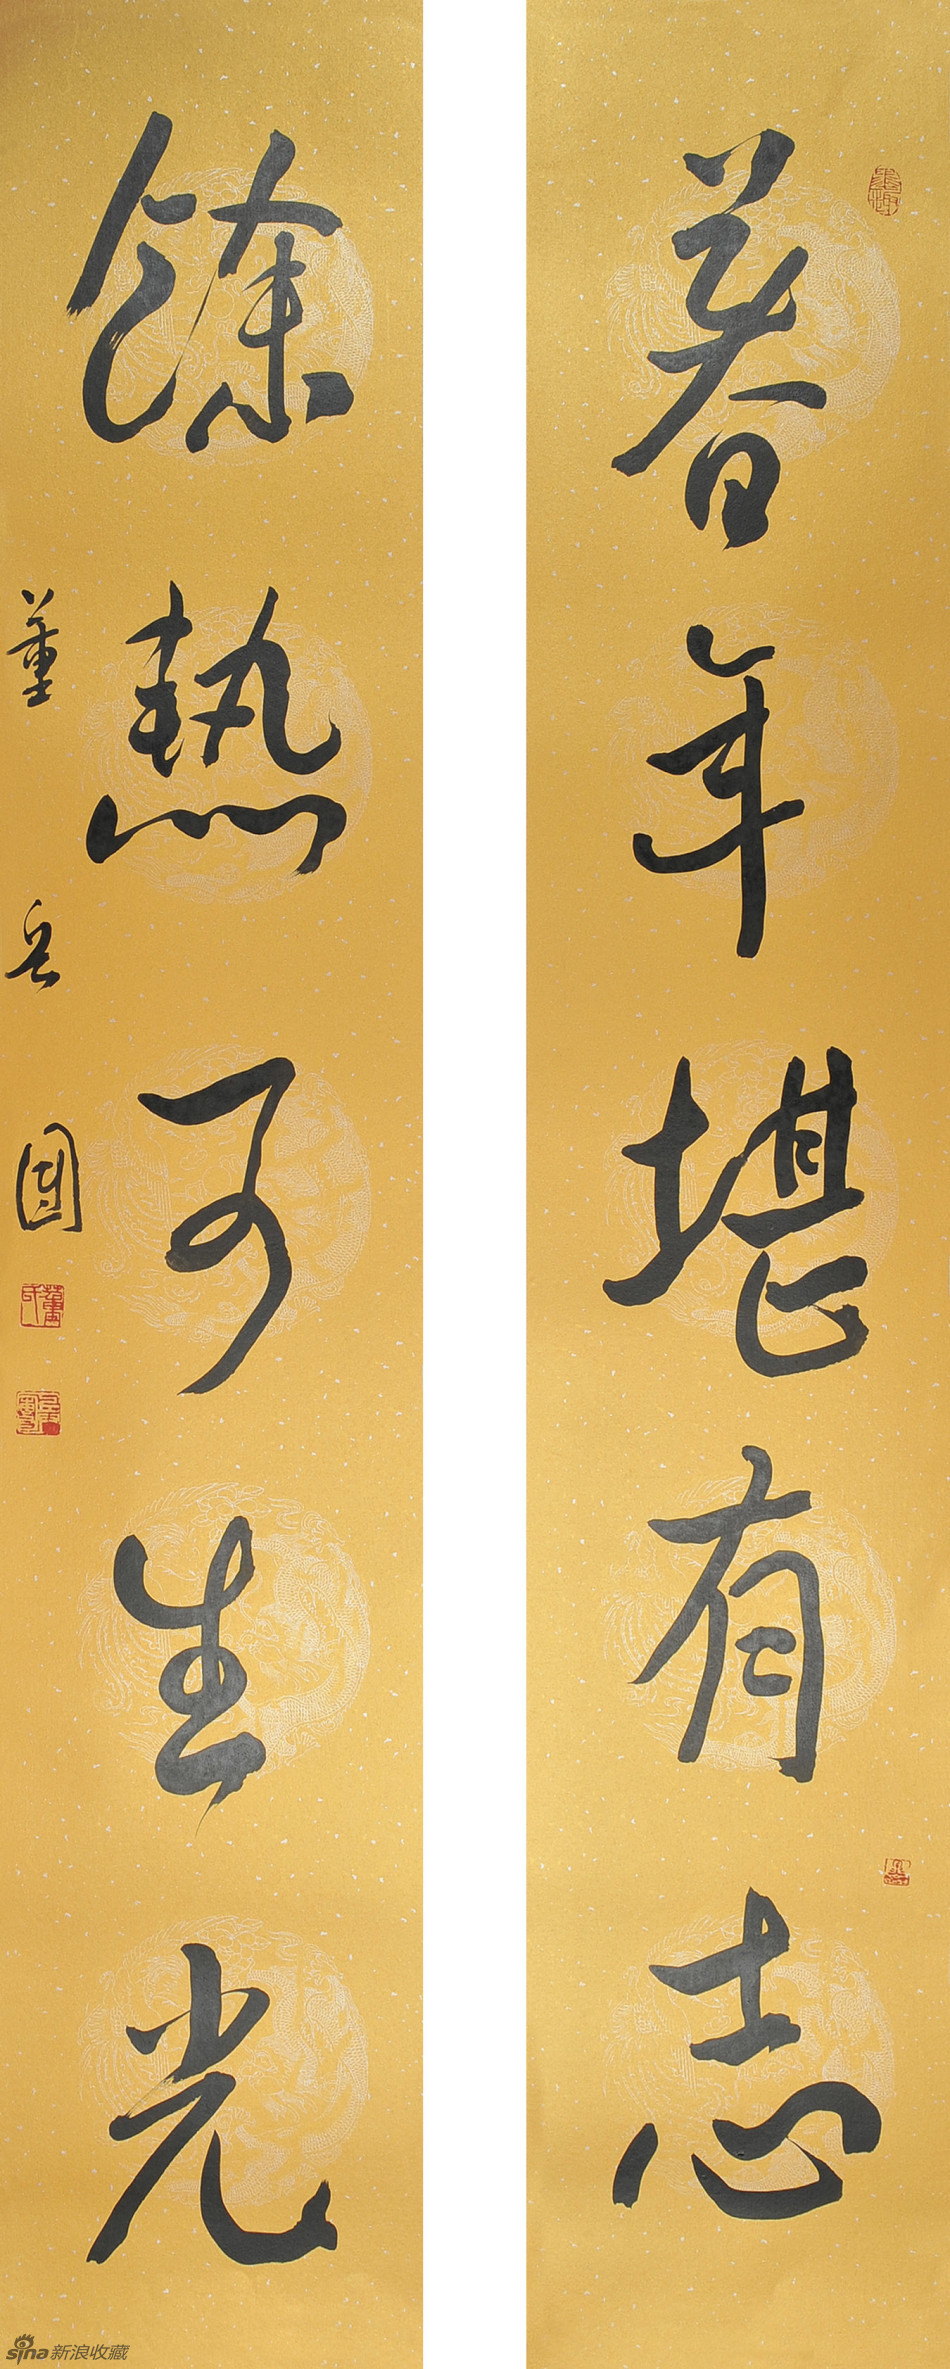 暮年堪有志
餘熱可生光
董岳園
sina新浪收藏